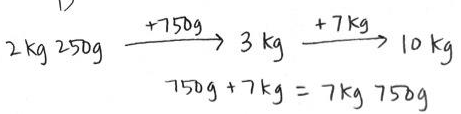 2 kg 250g +750g → 3 kg +7kg → 10 kg
750g + 7kg = 7kg 750g